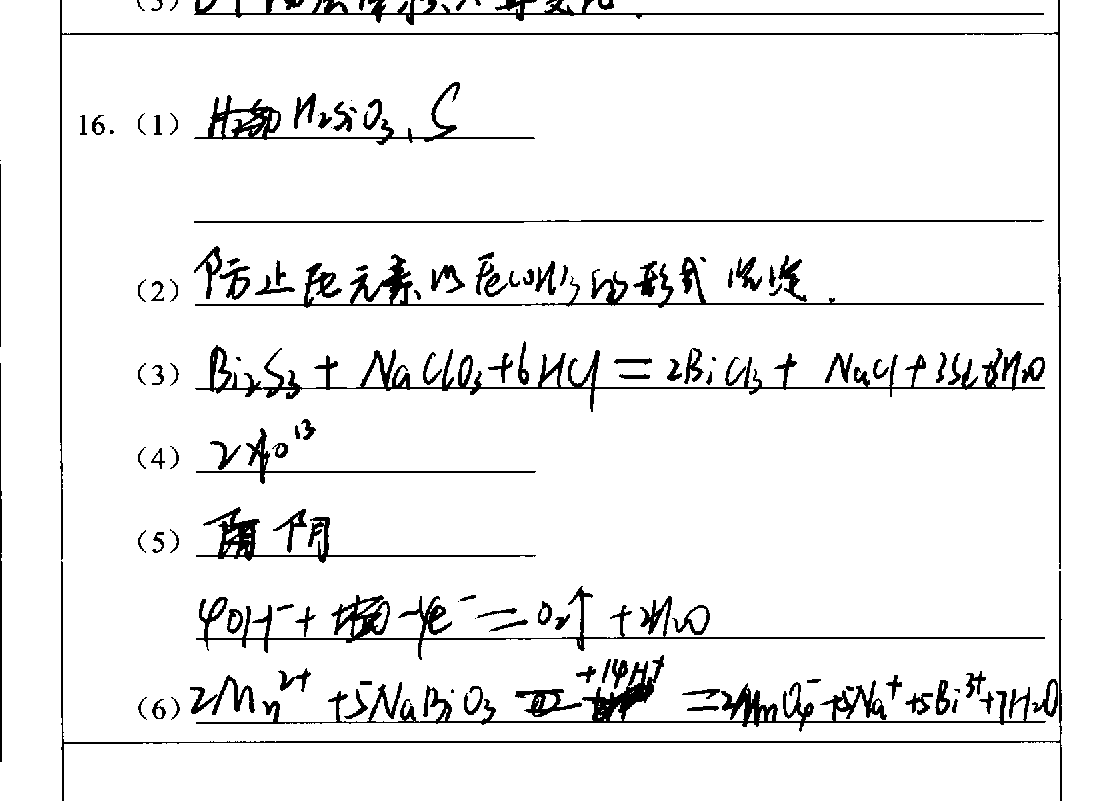 16. (1) H₂SiO₃、S
(2) 防止Fe元素以Fe(OH)₃的形式沉淀.
(3) Bi₂S₃ + NaClO₃ + 6HCl = 2BiCl₃ + NaCl + 3S + 3H₂O
(4) 2×10¹³
(5) 阴
4OH⁻ - 4e⁻ = O₂↑ + 2H₂O
(6) 2Mn²⁺ + 5NaBiO₃ + 14H⁺ = 2MnO₄⁻ + 5Na⁺ + 5Bi³⁺ + 7H₂O